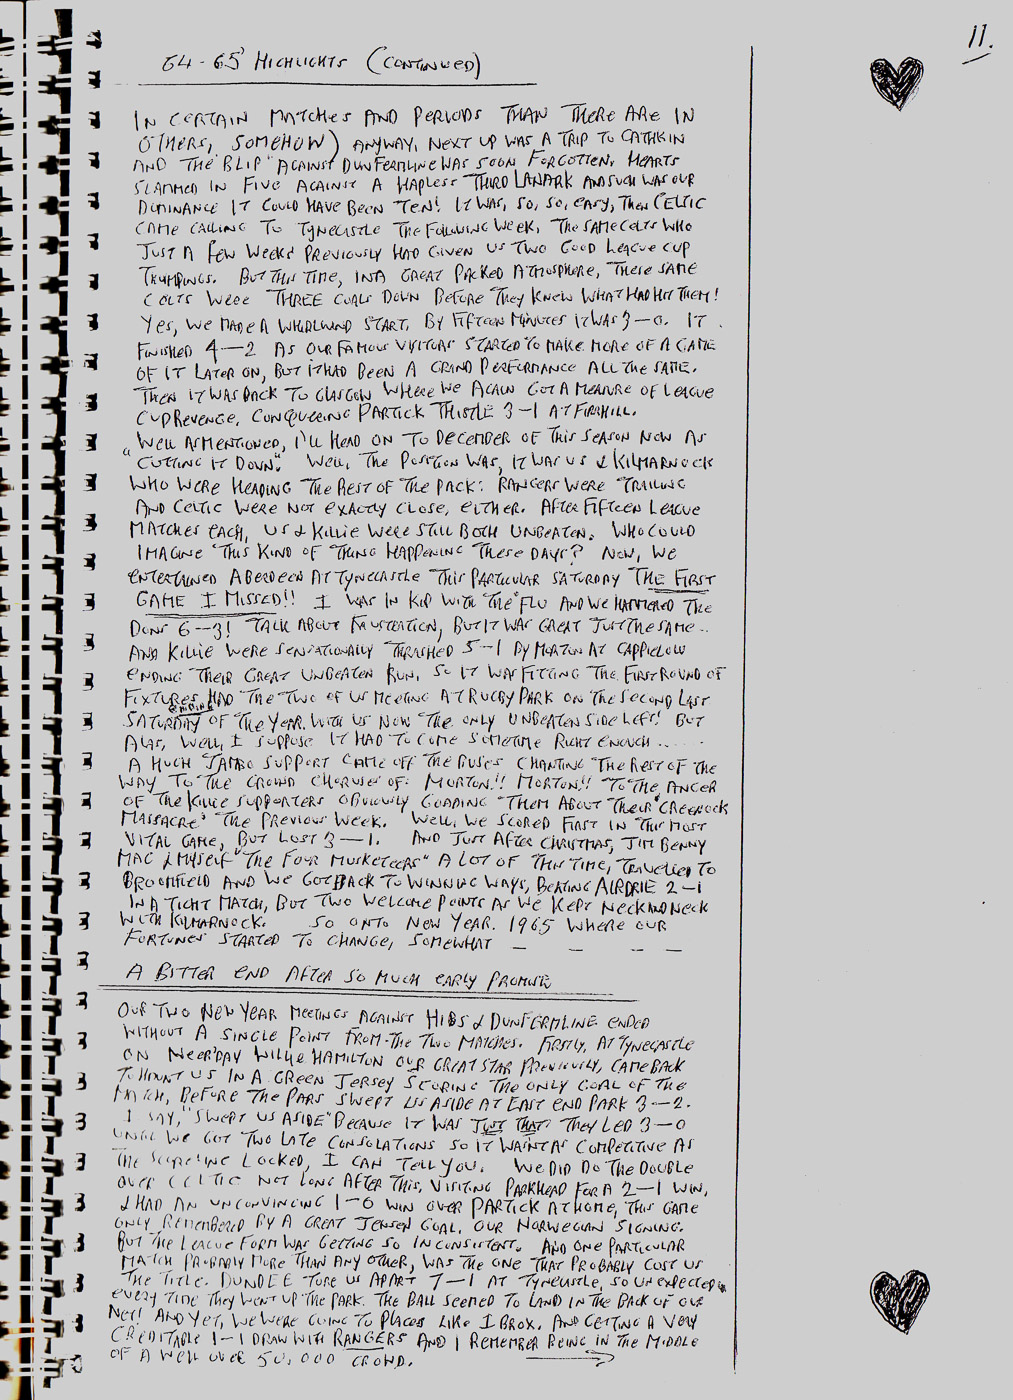 11.
64-65 HIGHLIGHTS (CONTINUED)
IN CERTAIN MATCHES AND PERIODS THAN THERE ARE IN
OTHERS, SOMEHOW) ANYWAY, NEXT UP WAS A TRIP TO CATHKIN
AND THE "BLIP" AGAINST DUNFERMLINE WAS SOON FORGOTTEN. HEARTS
SLAMMED IN FIVE AGAINST A HAPLESS THIRD LANARK AND SUCH WAS OUR
DOMINANCE IT COULD HAVE BEEN TEN! IT WAS, SO, SO, EASY, THEN CELTIC
CAME CALLING TO TYNECASTLE THE FOLLOWING WEEK, THE SAME CELTS WHO
JUST A FEW WEEKS PREVIOUSLY HAD GIVEN US TWO GOOD LEAGUE CUP
THUMPINGS. BUT THIS TIME, IN A GREAT PACKED ATMOSPHERE, THESE SAME
CELTS WERE THREE GOALS DOWN BEFORE THEY KNEW WHAT HAD HIT THEM!
YES, WE MADE A WHIRLWIND START, BY FIFTEEN MINUTES IT WAS 3-0. IT
FINISHED 4-2 AS OUR FAMOUS VISITORS STARTED TO MAKE MORE OF A GAME
OF IT LATER ON, BUT IT HAD BEEN A GRAND PERFORMANCE ALL THE SAME.
THEN IT WAS BACK TO GLASGOW WHERE WE AGAIN GOT A MEASURE OF LEAGUE
CUP REVENGE, CONQUERING PARTICK THISTLE 3-1 AT FIRHILL.
WELL AS MENTIONED, I'LL HEAD ON TO DECEMBER OF THIS SEASON NOW AS
"CUTTING IT DOWN". WELL, THE POSITION WAS, IT WAS US & KILMARNOCK
WHO WERE HEADING THE REST OF THE PACK. RANGERS WERE TRAILING
AND CELTIC WERE NOT EXACTLY CLOSE, EITHER. AFTER FIFTEEN LEAGUE
MATCHES EACH, US & KILLIE WERE STILL BOTH UNBEATEN. WHO COULD
IMAGINE THIS KIND OF THING HAPPENING THESE DAYS? NOW, WE
ENTERTAINED ABERDEEN AT TYNECASTLE THIS PARTICULAR SATURDAY THE FIRST
GAME I MISSED!! I WAS IN KIP WITH THE FLU AND WE HAMMERED THE
DONS 6-3! TALK ABOUT FRUSTRATION, BUT IT WAS GREAT JUST THE SAME..
AND KILLIE WERE SENSATIONALLY THRASHED 5-1 BY MORTON AT CAPPIELOW
ENDING THEIR GREAT UNBEATEN RUN, SO IT WAS FITTING THE FIRST ROUND OF
FIXTURES ENDING HAD THE TWO OF US MEETING AT RUGBY PARK ON THE SECOND LAST
SATURDAY OF THE YEAR. WITH US NOW THE ONLY UNBEATEN SIDE LEFT! BUT
ALAS, WELL, I SUPPOSE IT HAD TO COME SOMETIME RIGHT ENOUGH......
A HUGH JAMBO SUPPORT CAME OFF THE BUSES CHANTING THE REST OF THE
WAY TO THE GROUND CHORUSES OF: MORTON!! MORTON!! TO THE ANGER
OF THE KILLIE SUPPORTERS OBVIOUSLY GOADING THEM ABOUT THEIR "GREENOCK
MASSACRE" THE PREVIOUS WEEK. WELL, WE SCORED FIRST IN THIS MOST
VITAL GAME, BUT LOST 3-1. AND JUST AFTER CHRISTMAS, JIM BENNY
MAC & MYSELF "THE FOUR MUSKETEERS" A LOT OF THIS TIME, TRAVELLED TO
BROOMFIELD AND WE GOT BACK TO WINNING WAYS, BEATING AIRDRIE 2-1
IN A TIGHT MATCH, BUT TWO WELCOME POINTS AS WE KEPT NECK AND NECK
WITH KILMARNOCK. SO ONTO NEW YEAR. 1965 WHERE OUR
FORTUNES STARTED TO CHANGE, SOMEWHAT - - - -
A BITTER END AFTER SO MUCH EARLY PROMISE
OUR TWO NEW YEAR MEETINGS AGAINST HIBS & DUNFERMLINE ENDED
WITHOUT A SINGLE POINT FROM THE TWO MATCHES. FIRSTLY, AT TYNECASTLE
ON NEER'DAY WILLIE HAMILTON OUR GREAT STAR PREVIOUSLY, CAME BACK
TO HAUNT US IN A GREEN JERSEY SCORING THE ONLY GOAL OF THE
MATCH, BEFORE THE PARS SWEPT US ASIDE AT EAST END PARK 3-2.
I SAY, "SWEPT US ASIDE" BECAUSE IT WAS JUST THAT. THEY LED 3-0
UNTIL WE GOT TWO LATE CONSOLATIONS SO IT WASN'T AS COMPETITIVE AS
THE SCORELINE LOOKED, I CAN TELL YOU. WE DID DO THE DOUBLE
OVER CELTIC NOT LONG AFTER THIS, VISITING PARKHEAD FOR A 2-1 WIN,
& HAD AN UNCONVINCING 1-0 WIN OVER PARTICK AT HOME, THIS GAME
ONLY REMEMBERED BY A GREAT JENSEN GOAL, OUR NORWEGIAN SIGNING.
BUT THE LEAGUE FORM WAS GETTING SO INCONSISTENT. AND ONE PARTICULAR
MATCH PROBABLY MORE THAN ANY OTHER, WAS THE ONE THAT PROBABLY COST US
THE TITLE. DUNDEE TORE US APART 7-1 AT TYNECASTLE, SO UNEXPECTED
EVERY TIME THEY WENT UP THE PARK. THE BALL SEEMED TO LAND IN THE BACK OF OUR
NET! AND YET, WE WERE GOING TO PLACES LIKE IBROX. AND GETTING A VERY
CREDITABLE 1-1 DRAW WITH RANGERS AND I REMEMBER BEING IN THE MIDDLE
OF A WELL OVER 50,000 CROWD.